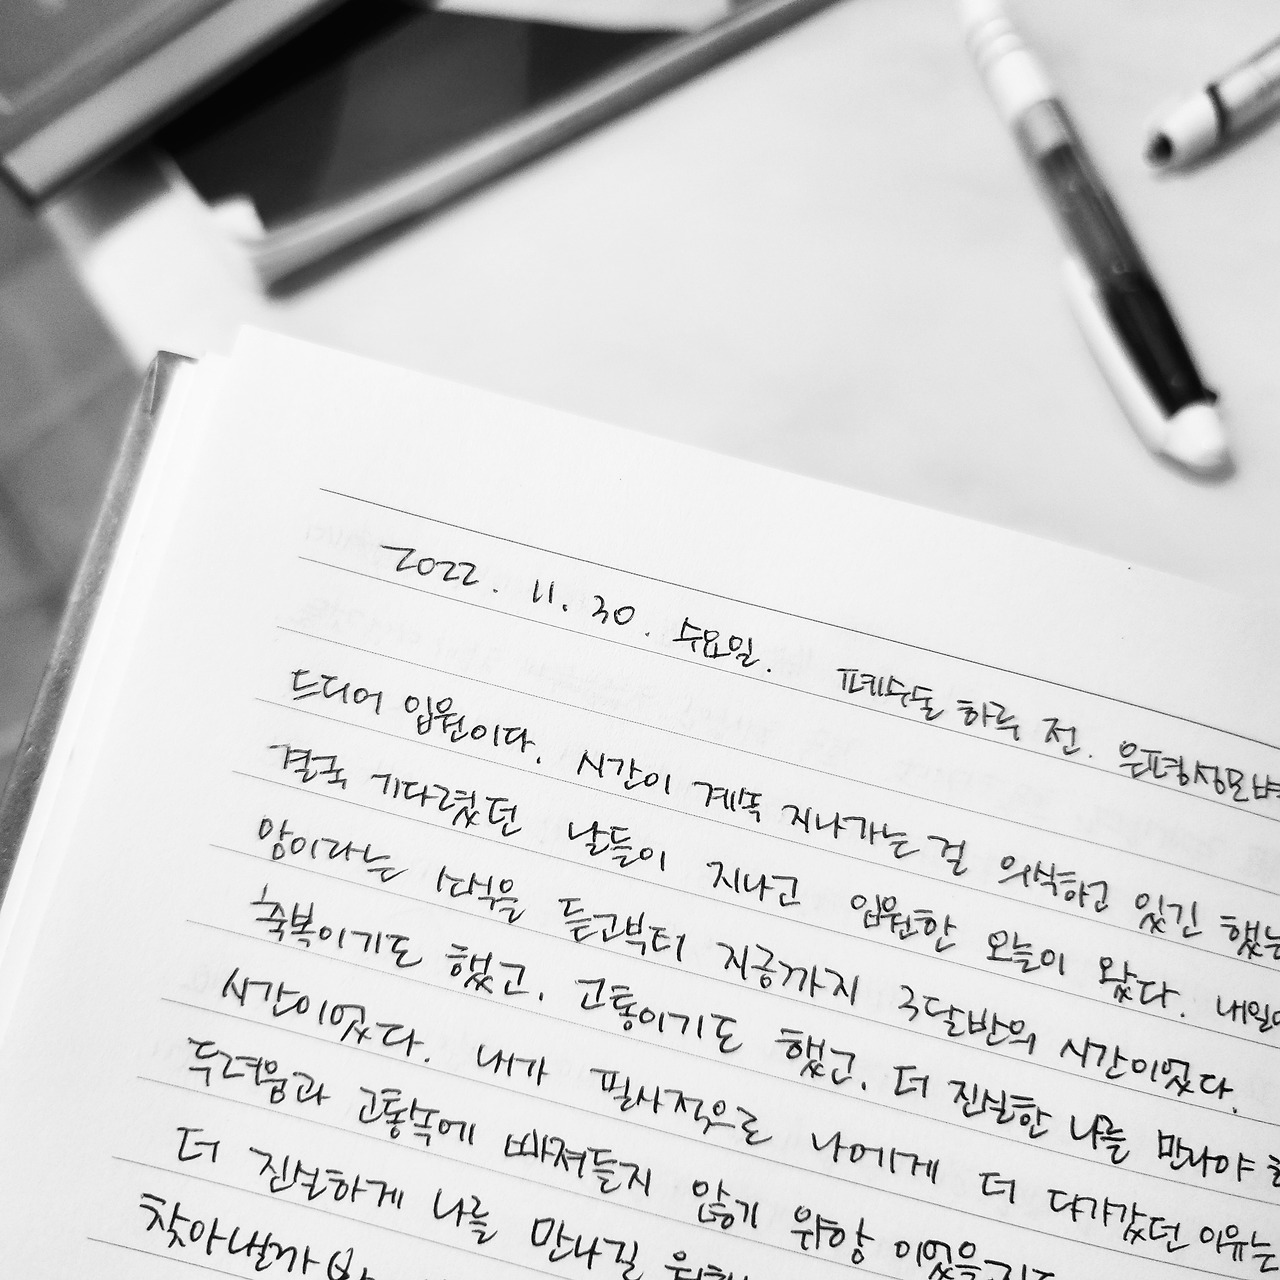 2022. 11. 30. 수요일. 폐수술 하루 전. 은평성모병
드디어 입원이다. 시간이 계속 지나가는 걸 의식하고 있긴 했는
결국 기다렸던 날들이 지나고 입원한 오늘이 왔다. 내일
암이라는 소식을 듣고부터 지금까지 3달반의 시간이었다.
축복이기도 했고, 고통이기도 했고, 더 진실한 나를 만나야
시간이었다. 내가 필사적으로 나에게 더 다가갔던 이유는
두려움과 고통속에 빠져들지 않기 위함이었을
더 진실하게 나를 만나길
찾아낼까봐